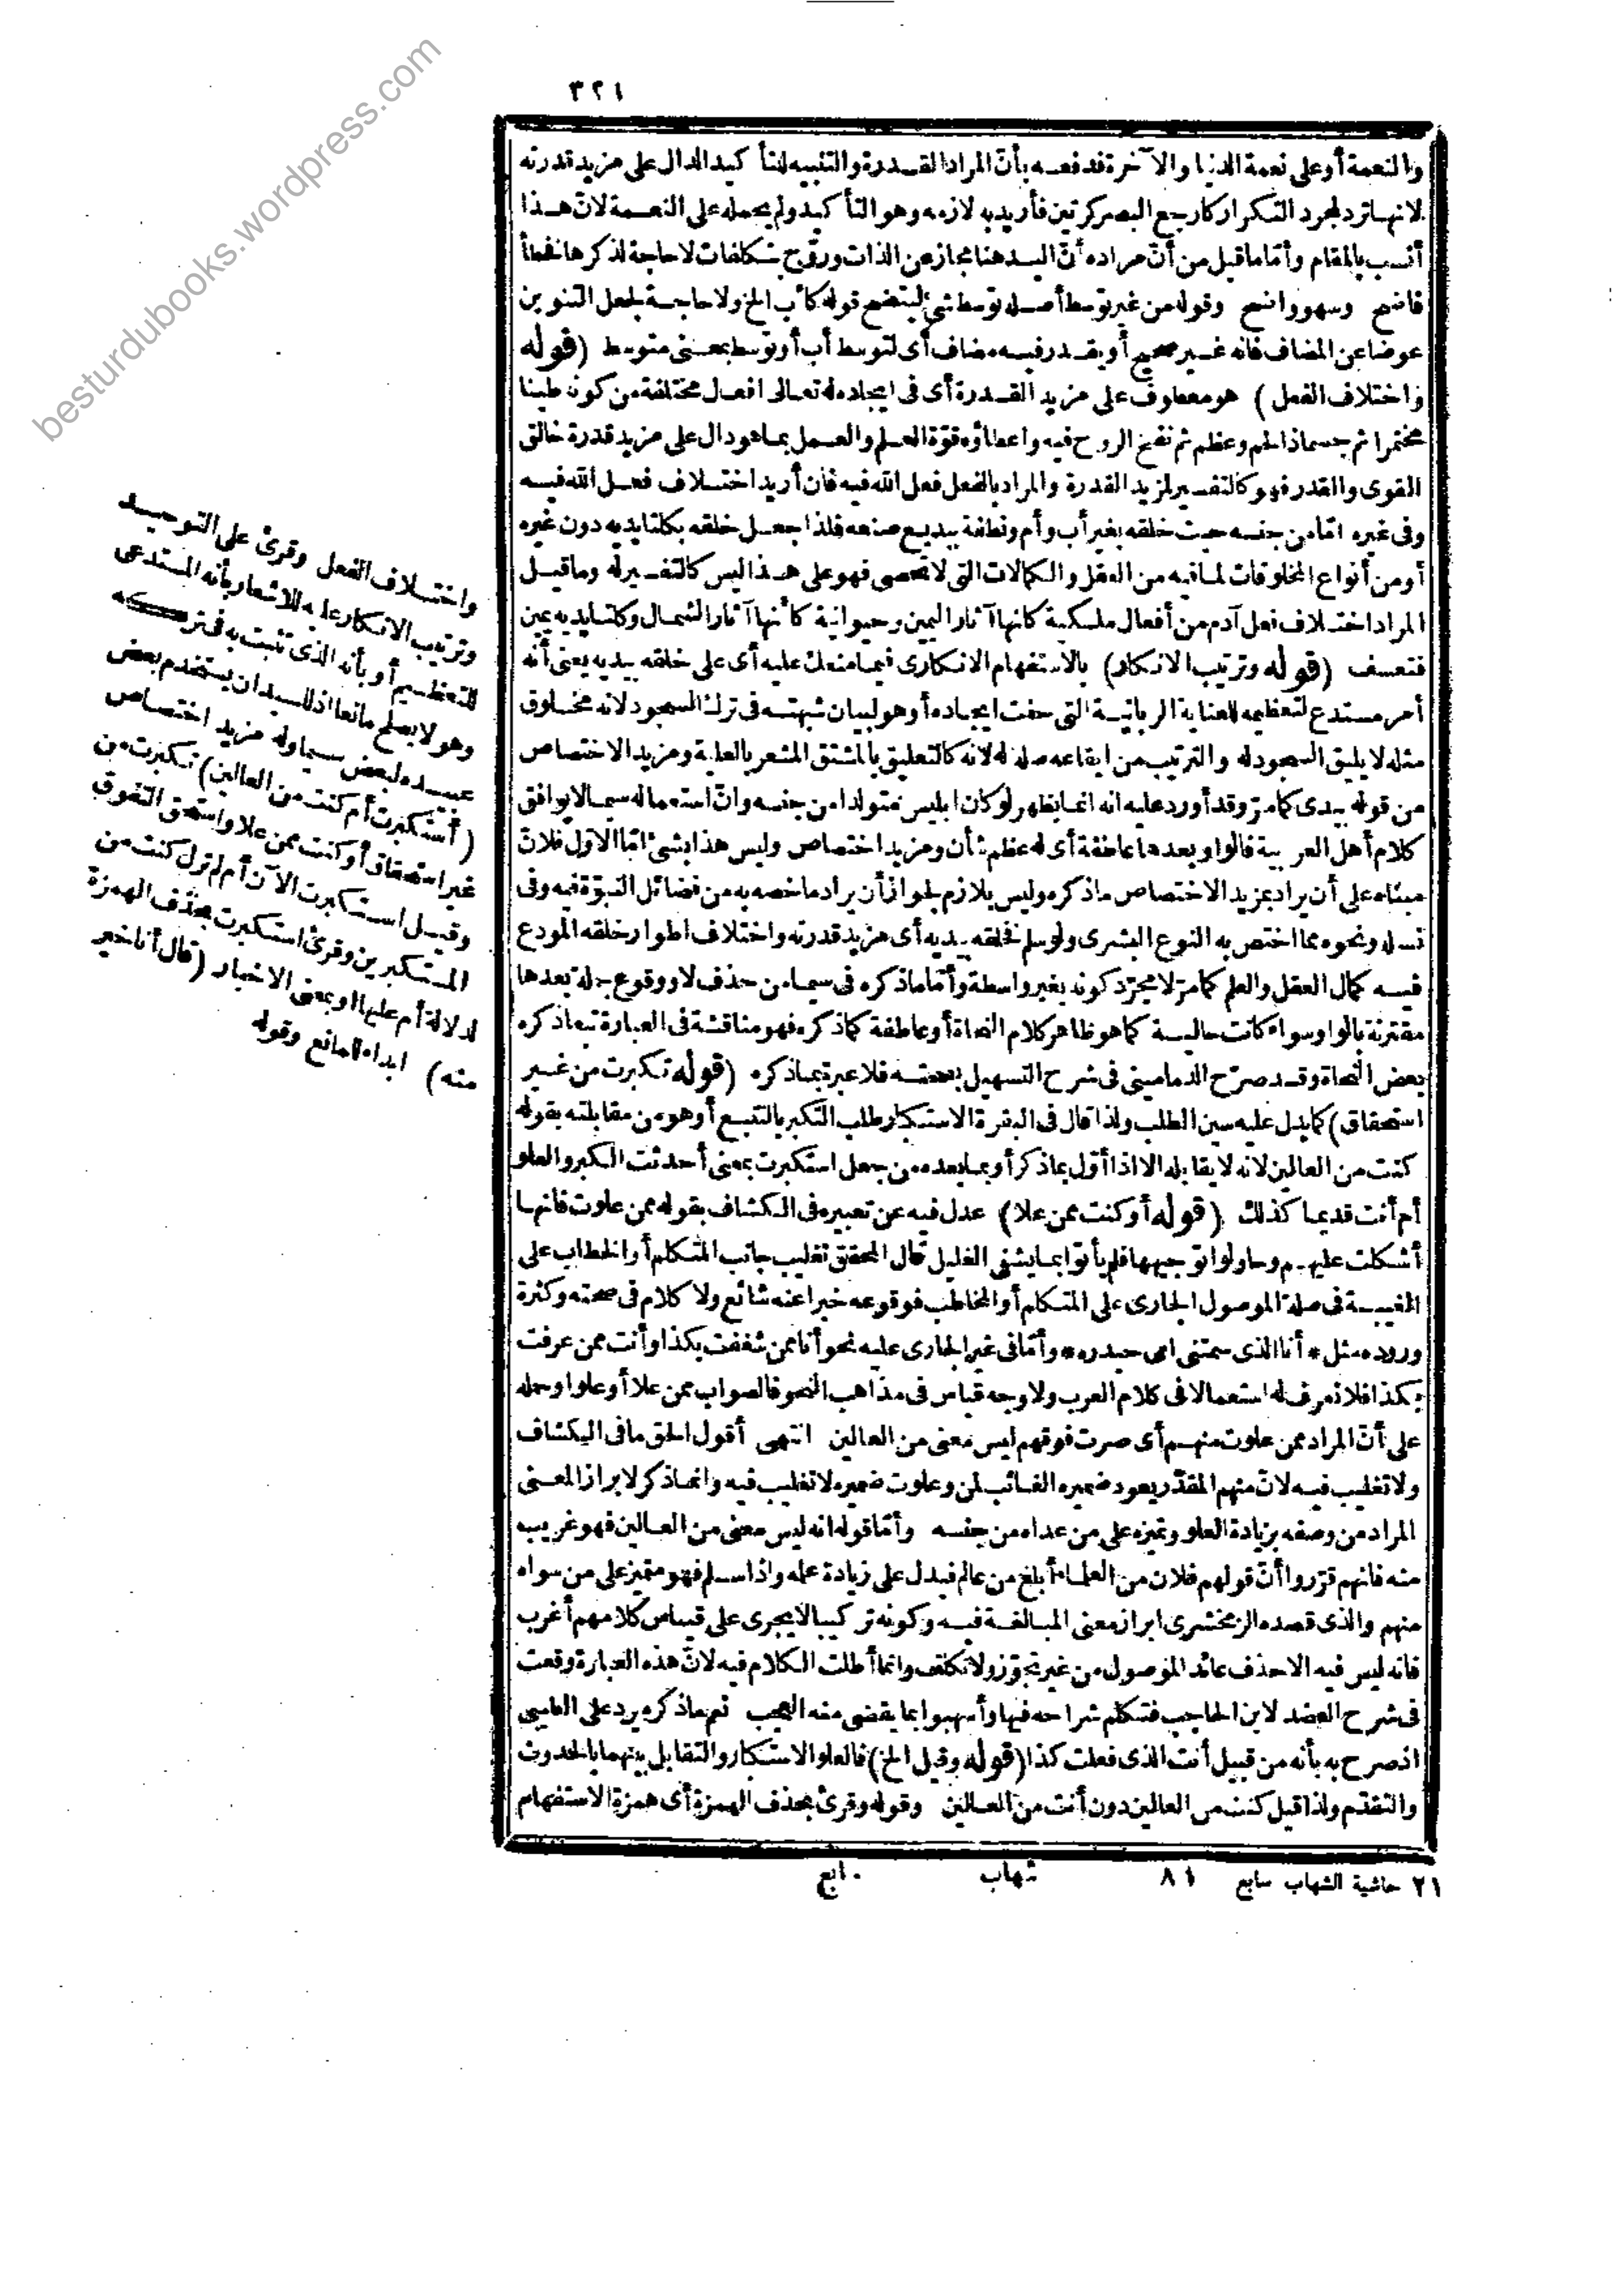 ٣٢١
والنعمة أو على نعمة الدنيا والآخرة فدفعه بأنّ المراد القدرة والتثنية للتأكيد الدال على مزيد قدرته
لانها ترد لمجرد التكرار كارجع البصر كرتين فأريد به لازمه وهو التأكيد ولم يحمله على النعمة لانّ هذا
أنسب بالمقام وأمّا ما قيل من أنّ مراده أنّ اليد هنا مجاز عن الذات وروّج بتكلفات لا حاجة لذكرها فخطأ
فاضح وسهو واضح وقوله من غير توسط أصله توسط شئ ليتضح قوله كأب الخ ولا حاجة لجعل التنوين
عوضا عن المضاف فانه غير صحيح أو يقدر فيه مضاف أى لتوسط أب أو توسط بمعنى متوسط (قوله
واختلاف الفعل) هو معطوف على مزيد القدرة أى فى ايجاده له تعالى افعال مختلفة من كونه طينا
مخمرا ثم جسما ذا لحم وعظم ثم نفخ الروح فيه واعطاؤه قوّة العلم والعمل بما هو دال على مزيد قدرة خالق
القوى والقدر فهو كالتفسير لمزيد القدرة والمراد بالفعل فعل الله فيه فان أريد اختلاف فعل الله فيه
وفى غيره امّا من جنسه حيث خلقه بغير أب وأم ونطفة ببديع صنعه فلذا جعل خلقه بكلتا يديه دون غيره
أو من أنواع المخلوقات لما فيه من العقل والكمالات التى لا تحصى فهو على هذا ليس كالتفسير له وما قيل
المراد اختلاف فعل آدم من أفعال ملكية كانها آثار اليمين وحيوانية كأنها آثار الشمال وكلتا يديه يمين
فتعسف (قوله وترتيب الانكار) بالاستفهام الانكارى فيما منعك عليه أى على خلقه بيديه يعنى أنه
أمر مستدع لتعظيمه للعناية الربانية التى حفت ايجاده أو هو لبيان شبهته فى ترك السجود لانه مخلوق
مثله لا يليق السجود له والترتيب من ايقاعه صلة له لانه كالتعليق بالمشتق المشعر بالعلية ومزيد الاختصاص
من قوله بيدى كما مرّ وقد أورد عليه انه انما يظهر لو كان ابليس متولدا من جنسه وانّ استعماله سيما لا يوافق
كلام أهل العربية فالواو بعدها عاطفة أى له عظم شأن ومزيد اختصاص وليس هذا بشئ امّا الاوّل فلانّ
مبناه على أن يراد بمزيد الاختصاص ما ذكره وليس بلازم لجواز أن يراد ما خصه به من فضائل النبوّة فيه وفى
نسله ونحوه مما اختص به النوع البشرى ولو سلم فخلقه بيديه أى مزيد قدرته واختلاف اطوار خلقه المودع
فيه كمال العقل والعلم كما مرّ لا مجرّد كونه بغير واسطة وأمّا ما ذكره فى سيما من حذف لا ووقوع جملة بعدها
مقترنة بالواو سواء كانت حالية كما هو ظاهر كلام النحاة أو عاطفة كما ذكره فهو مناقشة فى العبارة تبعا ذكره
بعض النحاة وقد صرّح الدمامينى فى شرح التسهيل بصحته فلا عبرة بما ذكره (قوله تكبرت من غير
استحقاق) كما يدل عليه سين الطلب ولذا قال فى البقرة الاستكبار طلب التكبر بالتشبع أو هو من مقابلته بقوله
كنت من العالين لانه لا يقابله الا اذا أوّل بما ذكر أو بما بعده من جعل استكبرت بمعنى أحدثت الكبر والعلو
أم أنت قديما كذلك (قوله أو كنت ممن علا) عدل فيه عن تعبيره فى الكشاف بقوله ممن علوت فانها
أشكلت عليهم وحاولوا توجيهها فلم يأتوا بما يشفى الغليل قال المحقق تغليب جانب المتكلم أو الخطاب على
الغيبة فى صلة الموصول الجارى على المتكلم أو المخاطب فوقوعه خبرا عنه شائع ولا كلام فى صحته وكثرة
وروده مثل * أنا الذى سمتنى امى حيدره * وأمّا فى غير الجارى عليه نحو أنا ممن شغفت بكذا وأنت ممن عرفت
بكذا فلا نعرف له استعمالا فى كلام العرب ولا وجه قياس فى مذاهب النحو فالصواب ممن علا أو علوا وحمله
على أنّ المراد ممن علوت منهم أى صرت فوقهم ليس معنى من العالين انتهى أقول الحق ما فى الكشاف
ولا تغليب فيه لانّ منهم المقدّر يعود ضميره الغائب لمن وعلوت ضميره لا تغليب فيه وانما ذكر لابراز المعنى
المراد من وصفه بزيادة العلو وتميزه على من عداه من جنسه وأمّا قوله انه ليس معنى من العالين فهو غريب
منه فانهم قرّروا أنّ قولهم فلان من العلماء أبلغ من عالم فيدل على زيادة علمه واذا سلم فهو متميز على من سواه
منهم والذى قصده الزمخشرى ابراز معنى المبالغة فيه وكونه تركيبا لا يجرى على قياس كلامهم أغرب
فانه ليس فيه الا حذف عائد الموصول من غير تجوّز ولا تكلف وانما أطلت الكلام فيه لانّ هذه العبارة وقعت
فى شرح العضد لابن الحاجب فتكلم شراحه فيها وأسهبوا بما يقضى منه العجب نعم ما ذكره يرد على الطيبى
اذ صرح به بأنه من قبيل أنت الذى فعلت كذا (قوله وقيل الخ) فالعلو الاستكبار والتقابل بينهما بالحدوث
والتقدّم ولذا قيل كنت من العالين دون أنت من العالين وقوله وقرئ بحذف الهمزة أى همزة الاستفهام
٢١ حاشية الشهاب سابع ٨١ شهاب ابع
واختلاف الفعل وقرئ على التوحيد
وترتيب الانكار عليه للاشعار بأنه المستدعى
للتعظيم أو بأنه الذى تشبث به فى تركه
وهو لا يصلح مانعا اذ للسيد ان يستخدم بعض
عبيده لبعض سيما وله مزيد اختصاص
(أستكبرت أم كنت من العالين) تكبرت من
غير استحقاق أو كنت ممن علا واستحق التفوق
وقيل استكبرت الآن أم لم تزل كنت من
المستكبرين وقرئ استكبرت بحذف الهمزة
لدلالة أم عليها أو بمعنى الاخبار (قال أنا خير
منه) ابداء للمانع وقوله
besturdubooks.wordpress.com